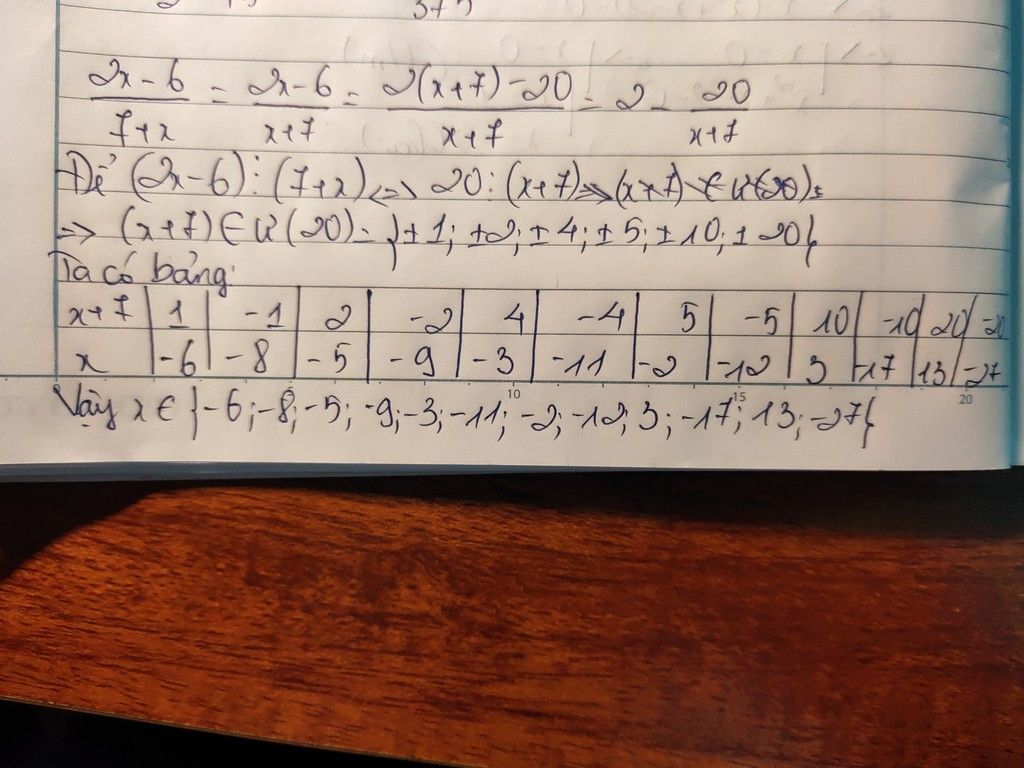 3+5
2x-6/7+x = 2x-6/x+7 = 2(x+7)-20/x+7 = 2 - 20/x+7
Để (2x-6)⋮(7+x) <=> 20⋮(x+7)
=> (x+7) ∈ Ư(20) = {±1; ±2; ±4; ±5; ±10; ±20}
Ta có bảng:
x+7 | 1 | -1 | 2 | -2 | 4 | -4 | 5 | -5 | 10 | -10 | 20 | -20
x | -6 | -8 | -5 | -9 | -3 | -11 | -2 | -12 | 3 | -17 | 13 | -27
10 15 20
Vậy x ∈ {-6; -8; -5; -9; -3; -11; -2; -12; 3; -17; 13; -27}